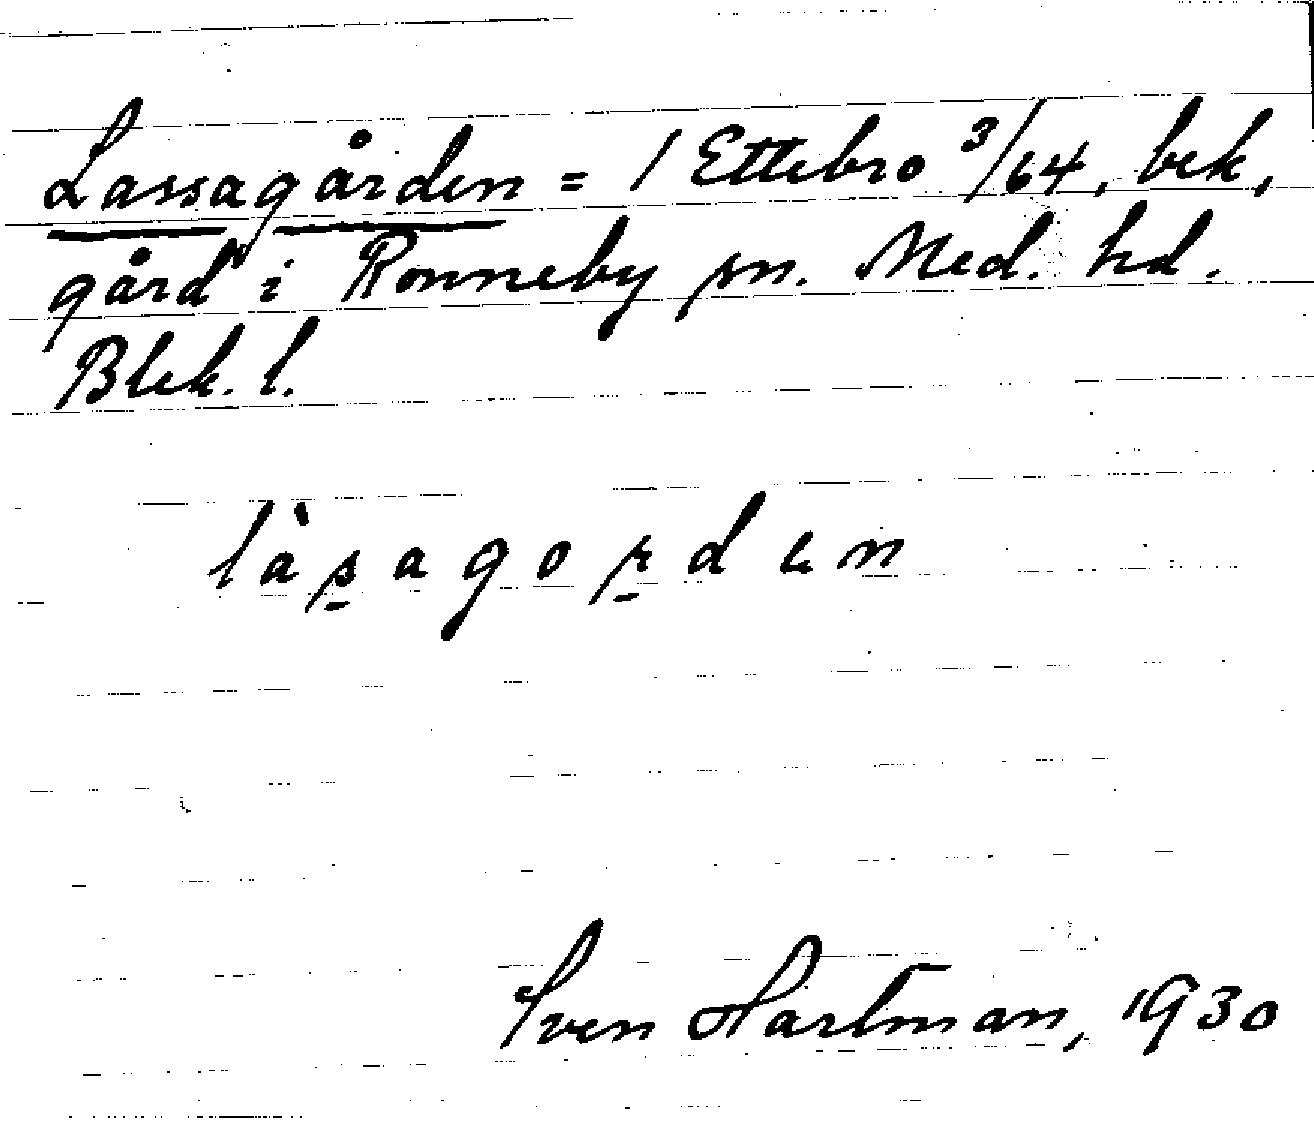 Lassagården = 1 Ettebro 3/64, bek,
gård i Ronneby sn. Med. hd.
Blek. l.
làs̱agoṟdən
Sven Hartman, 1930